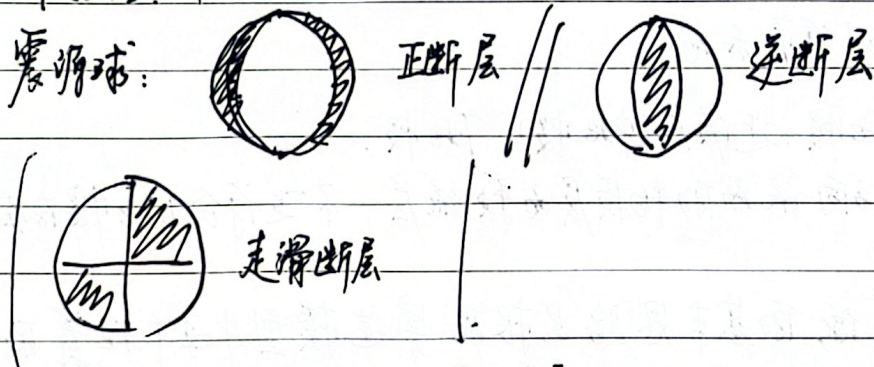 震源球: 正断层 逆断层
走滑断层